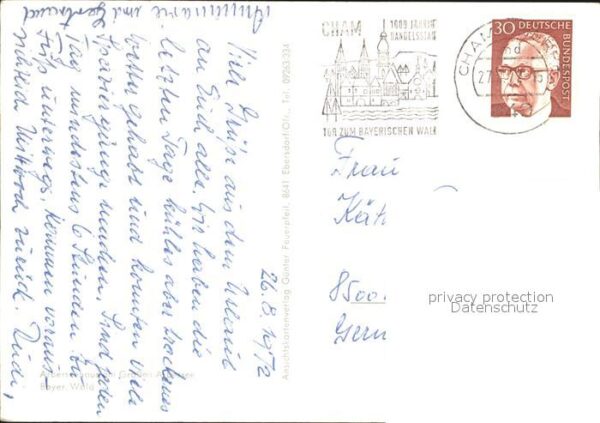 26.8.1972
Viele Grüße aus dem Urlaub
an Euch alle. Wir haben die
letzten Tage kühles aber trockenes
Wetter gehabt und konnten viele
Spaziergänge machen. Sind jeden
Tag mindestens 6 Stunden zu
Fuß unterwegs. Kommen voraus-
sichtlich Mittwoch zurück. Rudi,
Annemarie und Gertraud
Ansichtskartenverlag Günter Feuerpfeil, 8641 Ebersdorf/Ofr., Tel. 09263/334
Bayer. Wald
CHAM
1600 JÄHRIGE
HANDELSSTADT
TOR ZUM BAYERISCHEN WALD
CHAM
27.
30 DEUTSCHE
BUNDESPOST
Frau
Käth
8500
privacy protection
Datenschutz